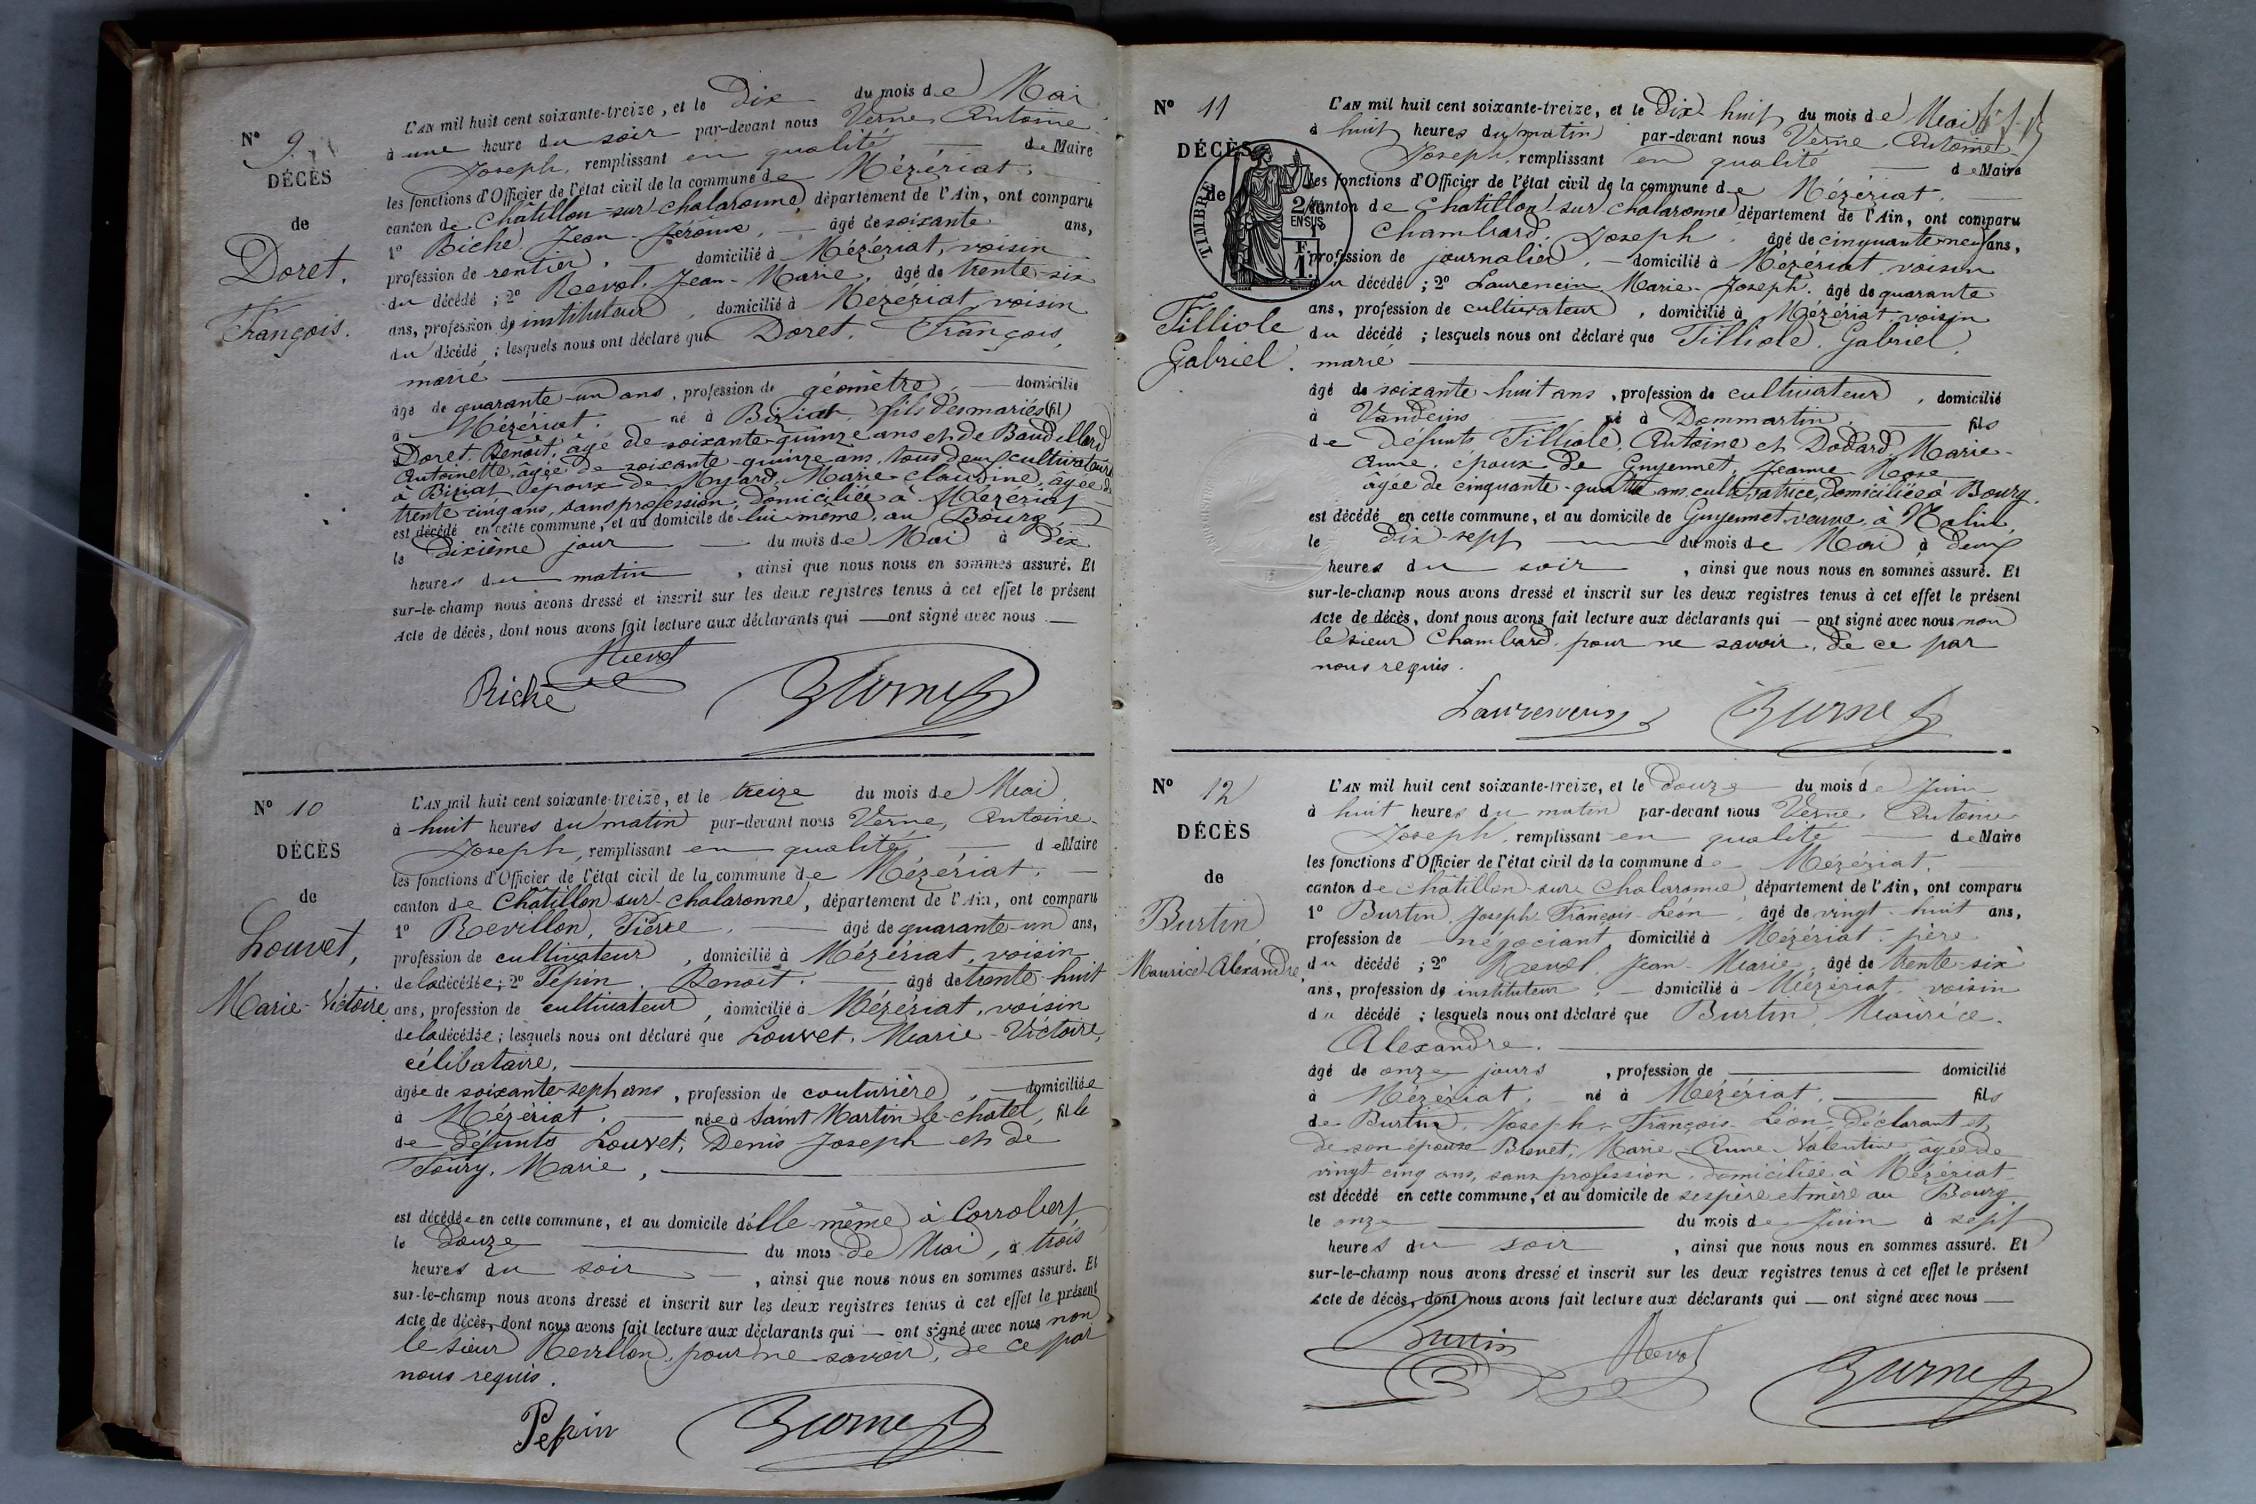 N° 9.
DÉCÈS
de
Doret,
François.
L'AN mil huit cent soixante-treize, et le Dix du mois de Mai
à une heure du soir par-devant nous Verne, Antoine-
Joseph, remplissant en qualité de Maire
les fonctions d'Officier de l'état civil de la commune de Mézériat,
canton de Châtillon-sur-chalaronne, département de l'Ain, ont comparu
1° Riche, Jean-Jérôme, âgé de soixante ans,
profession de rentier, domicilié à Mézériat, voisin
du décédé ; 2° Revol, Jean-Marie, âgé de trente-six
ans, profession de instituteur, domicilié à Mézériat, voisin
du décédé ; lesquels nous ont déclaré que Doret, François,
marié
âgé de quarante-un ans, profession de géomètre, domicilié
à Mézériat, né à Biziat, fils des mariés (fil)
Doret, Benoît, âgé de soixante-quinze ans et de Baudillard
Antoinette, âgée de soixante-quinze ans, tous deux cultivateurs
à Biziat, époux de Myard, Marie-claudine, âgée de
trente cinq ans, sans profession, domiciliée à Mézériat
est décédé en cette commune, et au domicile de lui-même, au Bourg,
le dixième jour du mois de Mai à dix
heures du matin, ainsi que nous nous en sommes assuré. Et
sur-le-champ nous avons dressé et inscrit sur les deux registres tenus à cet effet le présent
Acte de décès, dont nous avons fait lecture aux déclarants qui — ont signé avec nous —
Revol
Riche Verne
N° 10
DÉCÈS
de
Louvet,
Marie-Victoire
L'AN mil huit cent soixante-treize, et le treize du mois de Mai,
à huit heures du matin par-devant nous Verne, Antoine-
Joseph, remplissant en qualité de Maire
les fonctions d'Officier de l'état civil de la commune de Mézériat,
canton de Châtillon-sur-chalaronne, département de l'Ain, ont comparu
1° Revillon, Pierre, âgé de quarante-un ans,
profession de cultivateur, domicilié à Mézériat, voisin
de la décédée ; 2° Pepin, Benoît, âgé de trente-huit
ans, profession de cultivateur, domicilié à Mézériat, voisin
de la décédée ; lesquels nous ont déclaré que Louvet, Marie-Victoire,
célibataire,
âgée de soixante-sept ans, profession de couturière, domiciliée
à Mézériat, née à Saint Martin-le-chatel, fille
de défunts Louvet, Denis Joseph et de
Foury, Marie,
est décédée en cette commune, et au domicile d'elle-même à Corrobert,
le Douze du mois de Mai, à trois
heures du soir, ainsi que nous nous en sommes assuré. Et
sur-le-champ nous avons dressé et inscrit sur les deux registres tenus à cet effet le présent
Acte de décès, dont nous avons fait lecture aux déclarants qui — ont signé avec nous non
le sieur Revillon, pour ne savoir, de ce par
nous requis.
Pepin Verne
N° 11
DÉCÈS
de
TIMBRE
2/10 EN SUS
F. 1.
Filliole
Gabriel.
L'AN mil huit cent soixante-treize, et le Dix-huit du mois de Mai
à huit heures du matin par-devant nous Verne, Antoine
Joseph, remplissant en qualité de Maire
les fonctions d'Officier de l'état civil de la commune de Mézériat,
canton de Châtillon sur chalaronne département de l'Ain, ont comparu
Chambard, Joseph, âgé de cinquante-neuf ans,
profession de journalier, domicilié à Mézériat, voisin
du décédé ; 2° Laurencin, Marie-Joseph, âgé de quarante
ans, profession de cultivateur, domicilié à Mézériat, voisin
du décédé ; lesquels nous ont déclaré que Filliole, Gabriel,
marié
âgé de soixante-huit ans, profession de cultivateur, domicilié
à Vandeins né à Dommartin, fils
de Défunts Filliole, Antoine et Dodard, Marie-
Anne, époux de Guyennet, Jeanne-Rose
âgée de cinquante-quatre ans, cultivatrice, domiciliée à Bourg,
est décédé en cette commune, et au domicile de Guyennet veuve, à
le dix-sept du mois de Mai à deux
heures du soir, ainsi que nous nous en sommes assuré. Et
sur-le-champ nous avons dressé et inscrit sur les deux registres tenus à cet effet le présent
Acte de décès, dont nous avons fait lecture aux déclarants qui — ont signé avec nous non
le sieur Chambard, pour ne savoir, de ce par
nous requis.
Laurencin Verne
N° 12
DÉCÈS
de
Burtin
Maurice-Alexandre,
L'AN mil huit cent soixante-treize, et le douze du mois de Juin
à huit heures du matin par-devant nous Verne, Antoine
Joseph, remplissant en qualité de Maire
les fonctions d'Officier de l'état civil de la commune de Mézériat,
canton de Châtillon-sur-Chalaronne, département de l'Ain, ont comparu
1° Burtin, Joseph-François-Léon, âgé de vingt-huit ans,
profession de négociant, domicilié à Mézériat, père
du décédé ; 2° Revol, Jean-Marie, âgé de trente-six
ans, profession de instituteur, domicilié à Mézériat, voisin
du décédé ; lesquels nous ont déclaré que Burtin, Maurice-
Alexandre,
âgé de onze jours, profession de domicilié
à Mézériat, né à Mézériat, fils
de Burtin, Joseph-François-Léon, Déclarant et
de son épouse Brevet, Marie-Anne-Valentin, âgée de
vingt cinq ans, sans profession, domiciliée à Mézériat
est décédé en cette commune, et au domicile de ses père et mère au Bourg,
le onze du mois de Juin à sept
heures du soir, ainsi que nous nous en sommes assuré. Et
sur-le-champ nous avons dressé et inscrit sur les deux registres tenus à cet effet le présent
Acte de décès, dont nous avons fait lecture aux déclarants qui — ont signé avec nous —
Burtin Revol Verne